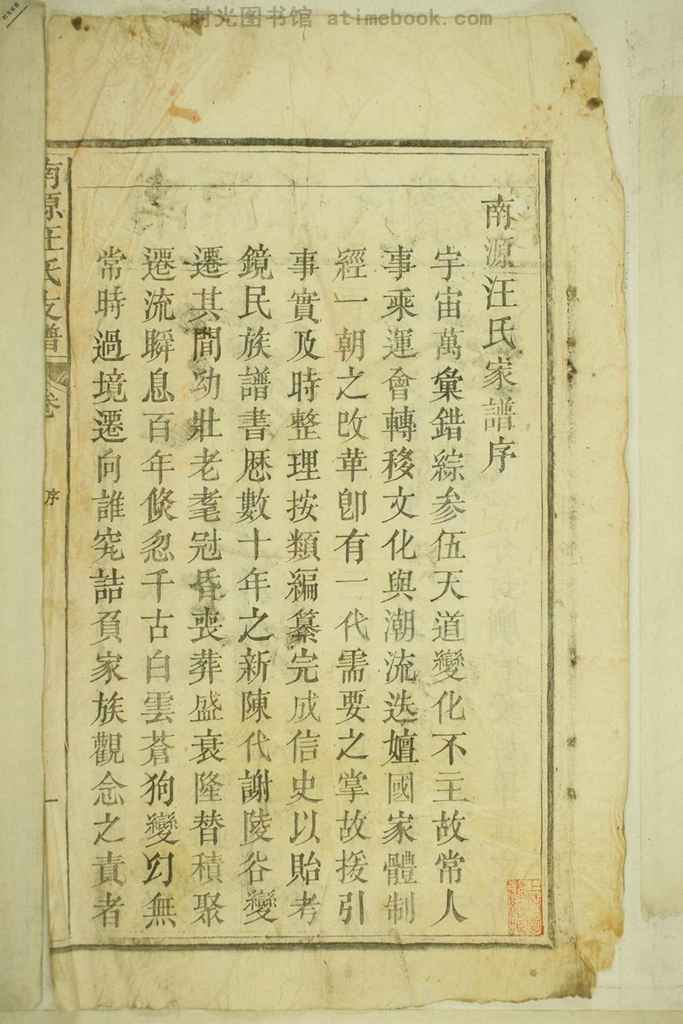 时光图书馆 atimebook.com
南源汪氏家譜序
宇宙萬彙錯綜参伍天道變化不主故常人
事乘運會轉移文化與潮流迭嬗國家體制
經一朝之改革卽有一代需要之掌故援引
事實及時整理按類編纂完成信史以貽考
鏡民族譜書歷數十年之新陳代謝陵谷變
遷其間幼壯老耄冠昏喪葬盛衰隆替積聚
遷流瞬息百年倐忽千古白雲蒼狗變幻無
常時過境遷向誰究詰負家族觀念之責者
南源汪氏支譜
卷
序
一